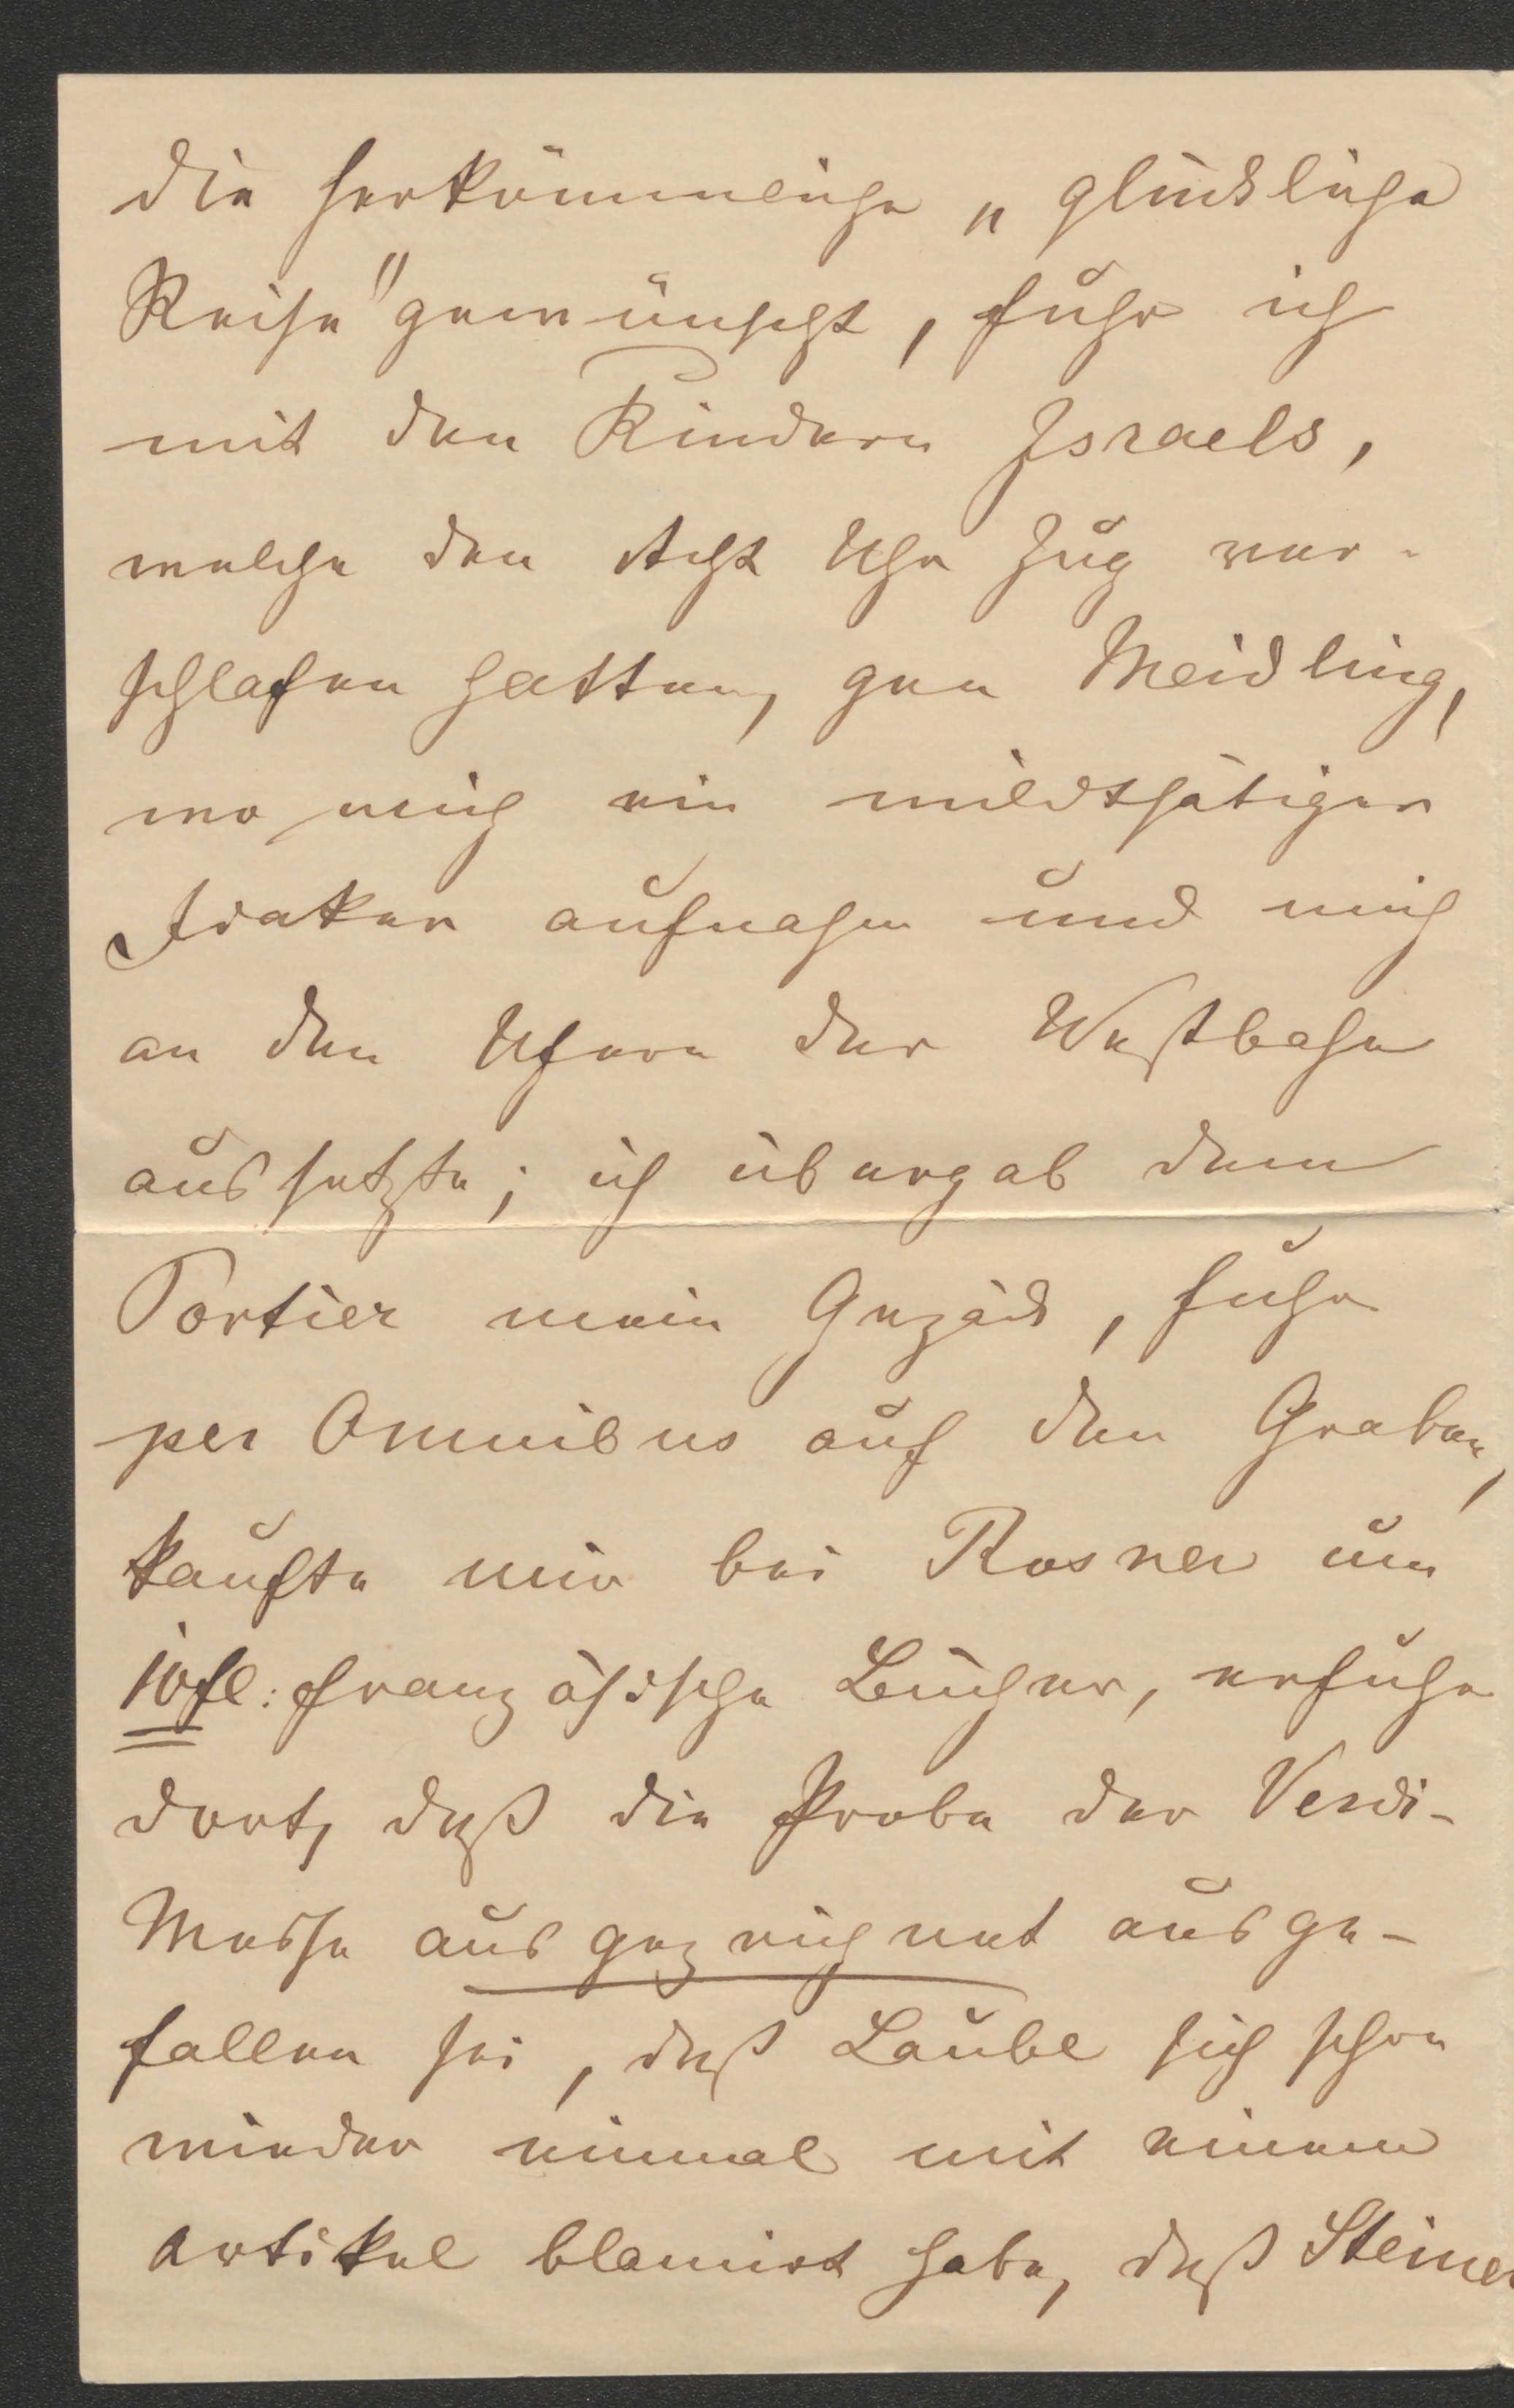 die herkömmliche „glückliche
Reise" gewünscht, fuhr ich
mit den Kindern Israels,
welche den Acht Uhr Zug ver-
schlafen hatten, gen Meidling,
wo mich ein mildthätiger
Fiaker aufnahm und mich
an den Ufern der Westbahn
aussetzte; ich übergab dem
Portier mein Gepäck, fuhr
per Omnibus auf den Graben,
kaufte mir bei Rosner um
10 fl: französische Bücher, erfuhr
dort, daß die Probe der Verdi-
Messe ausgezeichnet ausge-
fallen sei, daß Laube sich schon
wieder einmal mit einem
Artikel blamirt habe, daß Steiner